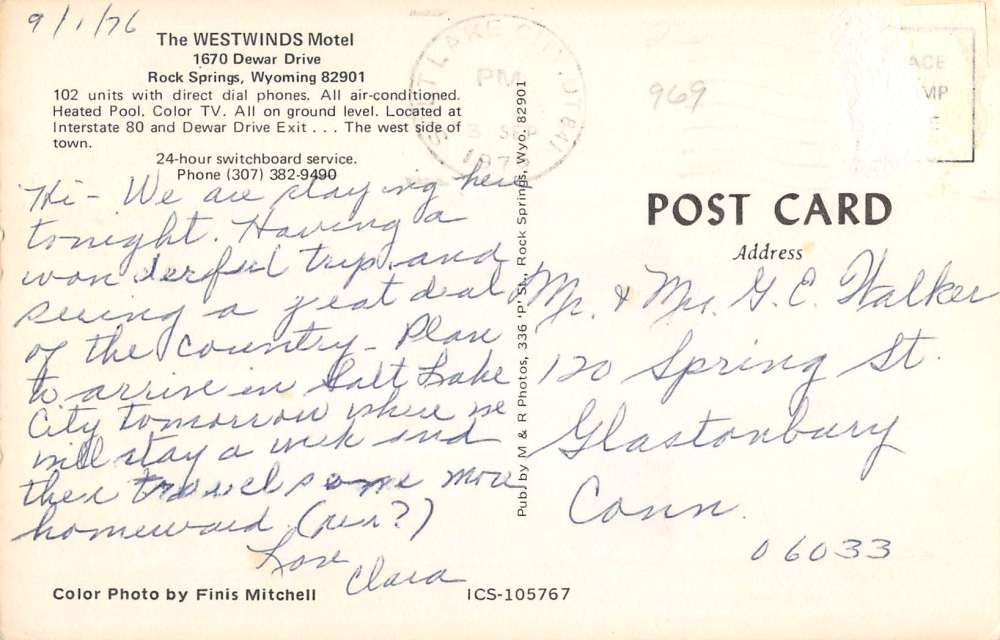 9/1/76
The WESTWINDS Motel
1670 Dewar Drive
Rock Springs, Wyoming 82901
102 units with direct dial phones. All air-conditioned.
Heated Pool. Color TV. All on ground level. Located at
Interstate 80 and Dewar Drive Exit . . . The west side of
town.
24-hour switchboard service.
Phone (307) 382-9490
Hi - We are staying here
tonight. Having a
wonderful trip and
seeing a great deal
of the country - Plan
to arrive in Salt Lake
City tomorrow where we
will stay a week and
then travel some more
homeward
Love
Clara
Color Photo by Finis Mitchell
ICS-105767
Pub. by M & R Photos, 336 'P' St., Rock Springs, Wyo. 82901
SALT LAKE CITY, UT 841
PM
3 SEP
969
ACE
MP
POST CARD
Address
Mr. & Mrs. G. C. Walker
120 Spring St.
Glastonbury
Conn.
06033